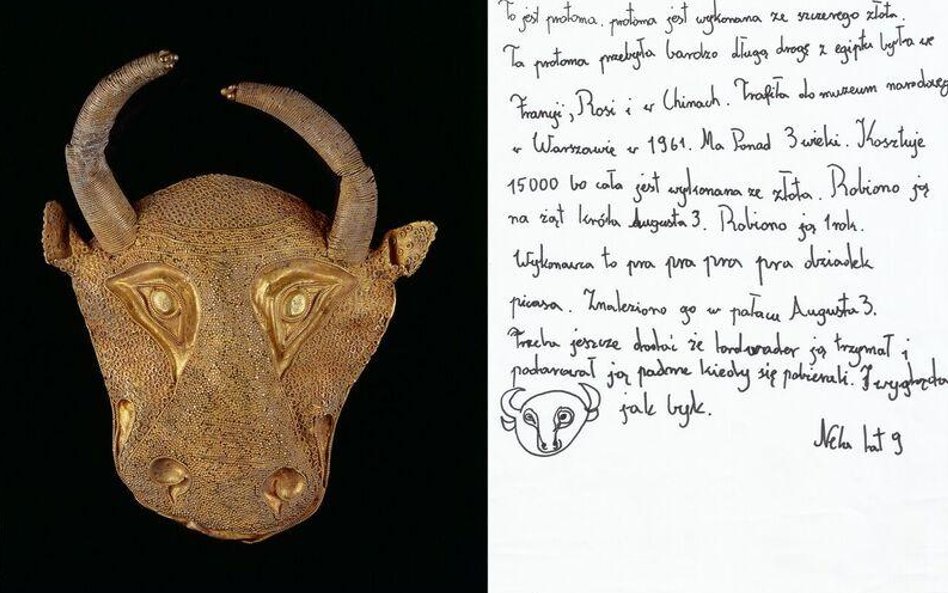 To jest protoma. protoma jest wykonana ze szczerego złota.
Ta protoma przebyła bardzo długą drogę z egiptu była we
Francji, Rosi i w Chinach. Trafiła do muzeum narodoweg
w Warszawie w 1961. Ma Ponad 3 wieki. Kosztuje
15000 bo cała jest wykonana ze złota. Robiono ją
na rząt króla Augusta 3. Robiono ją 1 rok.
Wykonawca to pra pra pra pra dziadek
picasa. Znaleziono go w pałacu Augusta 3.
Trzeba jeszcze dodać że lordwader ją trzymał i
podarował ją padme kiedy się pobierali. I wygląda
jak byk.
lat 9